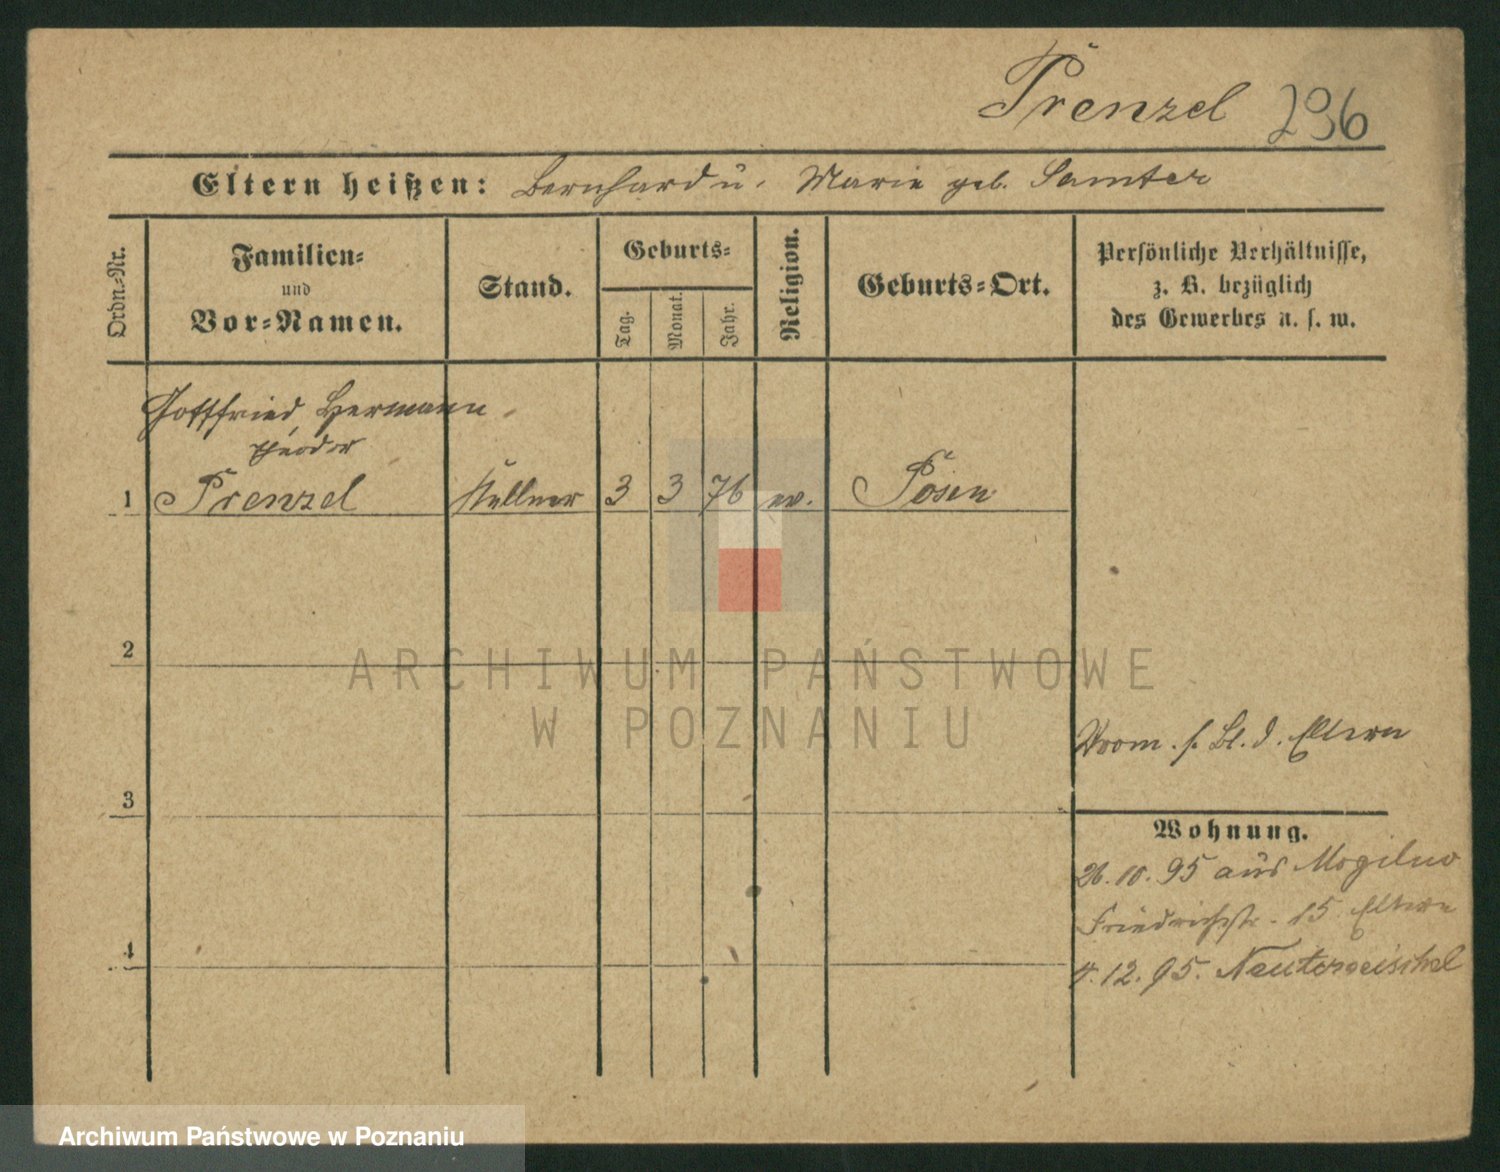 Prenzel 296
Eltern heißen: Bernhard u. Marie geb. Samter
Ordn.-Nr.
Familien-
und
Vor-Namen.
Stand.
Geburts-
Tag.
Monat.
Jahr.
Religion.
Geburts-Ort.
Persönliche Verhältnisse,
z. B. bezüglich
des Gewerbes u. s. w.
Gottfried Hermann
Theodor
1 Prenzel Kellner 3 3 76 ev. Posen
2
ARCHIWUM PAŃSTWOWE
W POZNANIU
Vrom. s. Bl. d. Eltern
3
Wohnung.
26. 10. 95 aus Mogilno
Friedrichstr. 15 Eltern
4
4. 12. 95.
Archiwum Państwowe w Poznaniu